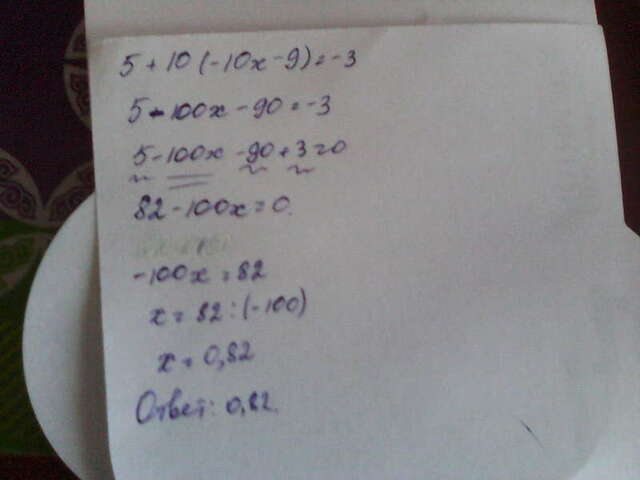 5 + 10 (-10x - 9) = -3
5 - 100x - 90 = -3
5 - 100x - 90 + 3 = 0
82 - 100x = 0.
-100x = 82
x = 82 : (-100)
x = 0,82
Ответ: 0,82.